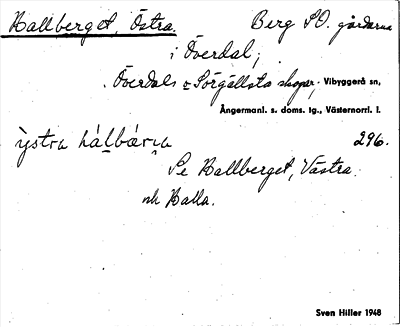 Hallberget, Östra. Berg SO. gårdarna
i Överdal;
Överdals o Sörgällsta skogar. Vibyggerå sn,
Ångermanl. s. doms. lg., Västernorrl. l.
ỳstra hálbærια 296.
Se Hallberget, Västra
och Halla.
Sven Hiller 1948